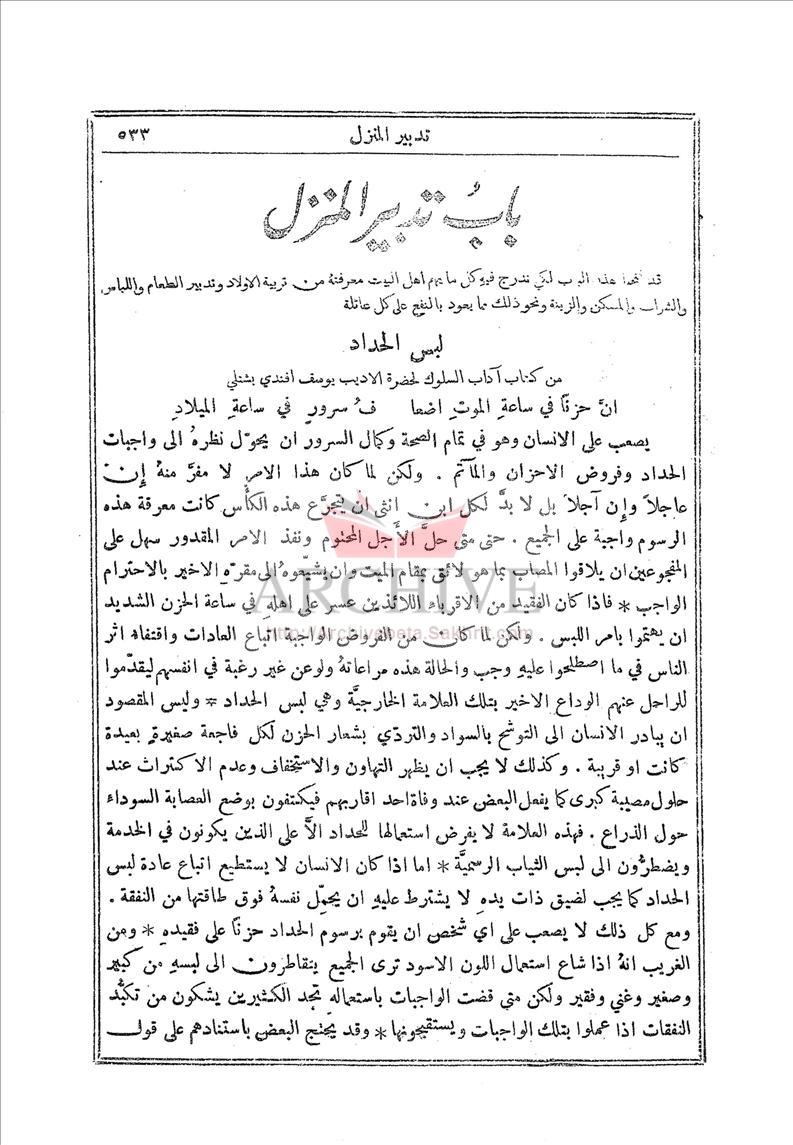 تدبير المنزل ٥٣٣
باب تدبير المنزل
قد فتحنا هذا الباب لكي ندرج فيه كل ما يهم اهل البيت معرفتهُ من تربية الاولاد وتدبير الطعام واللباس
والشراب والمسكن والزينة ونحو ذلك مما يعود بالنفع على كل عائلة
لبس الحداد
من كتاب آداب السلوك لحضرة الاديب يوسف افندي بشتلي
انَّ حزنًا في ساعةِ الموتِ اضعا فُ سرورٍ في ساعةِ الميلادِ
يصعب على الانسان وهو في تمام الصحة وكمال السرور ان يحوّل نظرهُ الى واجبات
الحداد وفروض الاحزان والمآتم . ولكن لما كان هذا الامر لا مفرَّ منهُ إن
عاجلاً وإن آجلاً بل لا بدَّ لكل ابن انثى ان يتجرَّع هذه الكأس كانت معرفة هذه
الرسوم واجبة على الجميع . حتى متى حلَّ الأَجل المحتوم ونفذ الامر المقدور سهل على
المفجوعين ان يلاقوا المصاب بما هو لائق بمقام الميت وان يشيّعوهُ الى مقرّهِ الاخير بالاحترام
الواجب * فاذا كان الفقيد من الاقرباء اللائذين عسر على اهلهِ في ساعة الحزن الشديد
ان يهتموا بامر اللبس . ولكن لما كان من الفروض الواجبة اتباع العادات واقتفاء اثر
الناس في ما اصطلحوا عليهِ وجب والحالة هذه مراعاتهُ ولو عن غير رغبة في انفسهم ليقدّموا
للراحل عنهم الوداع الاخير بتلك العلامة الخارجيَّة وهي لبس الحداد * وليس المقصود
ان يبادر الانسان الى التوشح بالسواد والتردّي بشعار الحزن لكل فاجعة صغيرةٍ بعيدة
كانت او قريبة . وكذلك لا يجب ان يظهر التهاون والاستخفاف وعدم الاكتراث عند
حلول مصيبة كبرى كما يفعل البعض عند وفاة احد اقاربهم فيكتفون بوضع العصابة السوداء
حول الذراع . فهذه العلامة لا يفرض استعمالها للحداد الاَّ على الذين يكونون في الخدمة
ويضطرُّون الى لبس الثياب الرسميَّة * اما اذا كان الانسان لا يستطيع اتباع عادة لبس
الحداد كما يجب لضيق ذات يدهِ لا يشترط عليهِ ان يحمّل نفسهُ فوق طاقتها من النفقة .
ومع كل ذلك لا يصعب على اي شخص ان يقوم برسوم الحداد حزنًا على فقيدهِ * ومن
الغريب انهُ اذا شاع استعمال اللون الاسود ترى الجميع يتقاطرون الى لبسهِ من كبير
وصغير وغني وفقير ولكن متى قضت الواجبات باستعمالهِ تجد الكثيرين يشكون من تكبُّد
النفقات اذا عملوا بتلك الواجبات ويستقبحونها * وقد يحتج البعض باستنادهم على قول
ARCHIVE
http://Archivebeta.Sakhrit.com